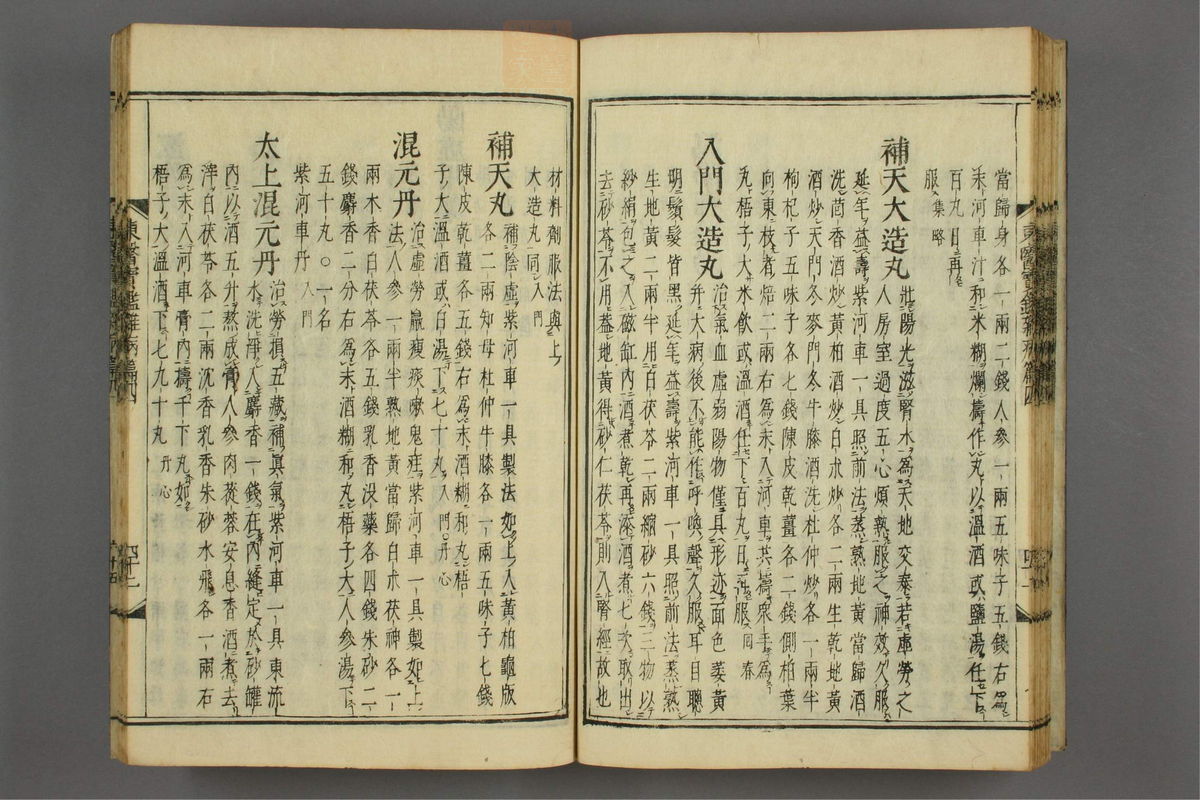 當歸身各一兩二錢人參一兩五味子五錢右爲
末河車汁和米糊爛擣作丸以溫酒或鹽湯任下
百丸日再
服集略
補天大造丸 壯陽光滋腎水爲天地交泰若虛勞之
人房室過度五心煩熱服之神效久服
延年益壽紫河車一具照前法蒸熟地黃當歸酒
洗茴香酒炒黃柏酒炒白朮炒各二兩生乾地黃
酒炒天門冬麥門冬牛膝酒洗杜仲炒各一兩半
枸杞子五味子各七錢陳皮乾薑各二錢側柏葉
向東枝者焙二兩右爲末入河車共擣衆手爲
丸梧子大米飮或溫酒任下百丸日二服回春
入門大造丸 治氣血虛弱陽物僅具形迹面色萎黃
并大病後不能作呼喚聲久服耳目聰
明鬚髮皆黑延年益壽紫河車一具照前法蒸熟
生地黃二兩半用白茯苓二兩縮砂六錢三物以
紗絹包之入磁缸內酒煮乾再添酒煮七次取出
去砂苓不用盖地黃得砂仁茯苓則入腎經故也
材料劑服法與上
大造丸同入門
補天丸 補陰虛紫河車一具製法如上入黃柏龜版
各二兩知母杜仲牛膝各一兩五味子七錢
陳皮乾薑各五錢右爲末酒糊和丸梧
子大溫酒或白湯下七十丸入門○丹心
混元丹 治虛勞羸瘦痰嗽鬼疰紫河車一具製如上
法人參一兩半熟地黃當歸白朮茯神各一
兩木香白茯苓各五錢乳香沒藥各四錢朱砂二
錢麝香二分右爲末酒糊和丸梧子大人參湯下
五十丸○一名
紫河車丹入門
太上混元丹 治勞損五藏補眞氣紫河車一具東流
水洗淨入麝香一錢在內縫定於砂罐
內以酒五升熬成膏人參肉蓯蓉安息香酒煮去
滓白茯苓各二兩沉香乳香朱砂水飛各一兩右
爲末入河車膏內擣千下丸如
梧子大溫酒下七九十丸丹心
東醫寶鑑雜病篇四
四十二